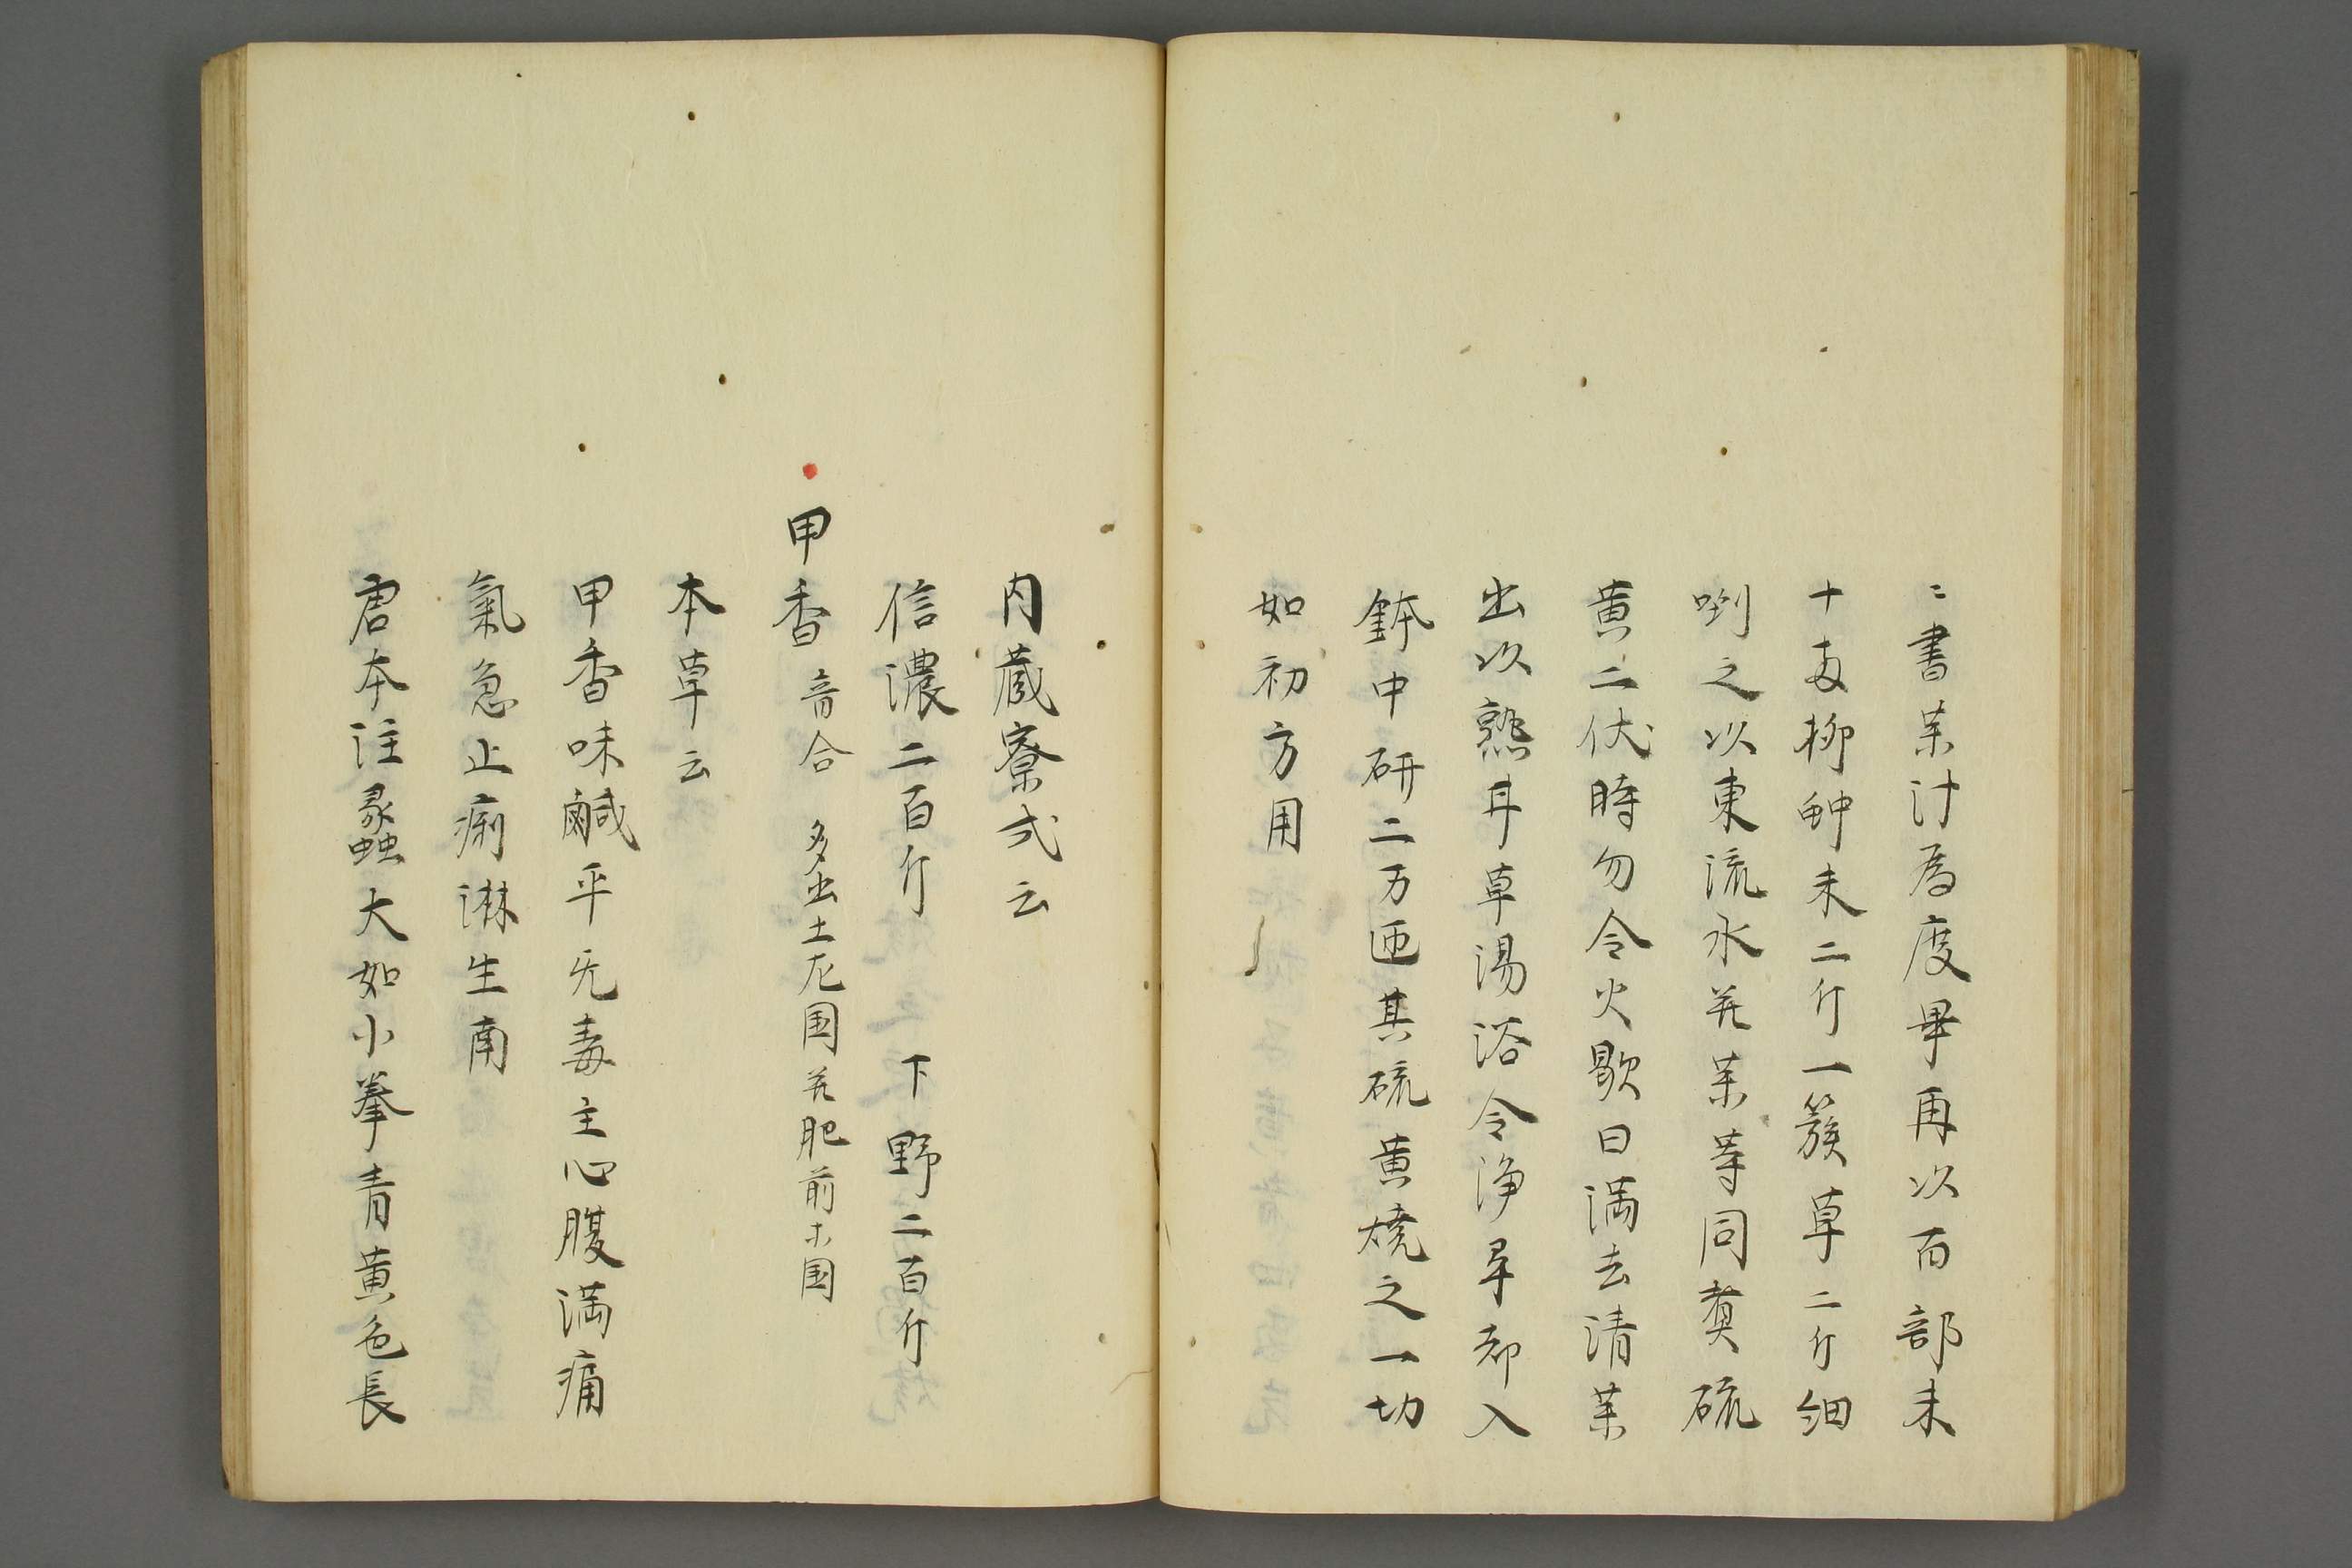 〻書茱汁為度畢再以百部未
十両柳蚛未二斤一簇草二斤細
唎之以東流水并茱等同煑硫
黄二伏時勿令火歇日満去清茱
出以熟甘草湯浴令浄尋却入
鉢中研二万迊其硫黄焼之一切
如初方用
内蔵寮式云
信濃二百斤 下野二百斤
甲香 音合 多出土左国并肥前ホ国
本草云
甲香味鹹平无毒主心腹満痛
氣急止痢淋生南
唐本注蠡大如小拳青黄色長